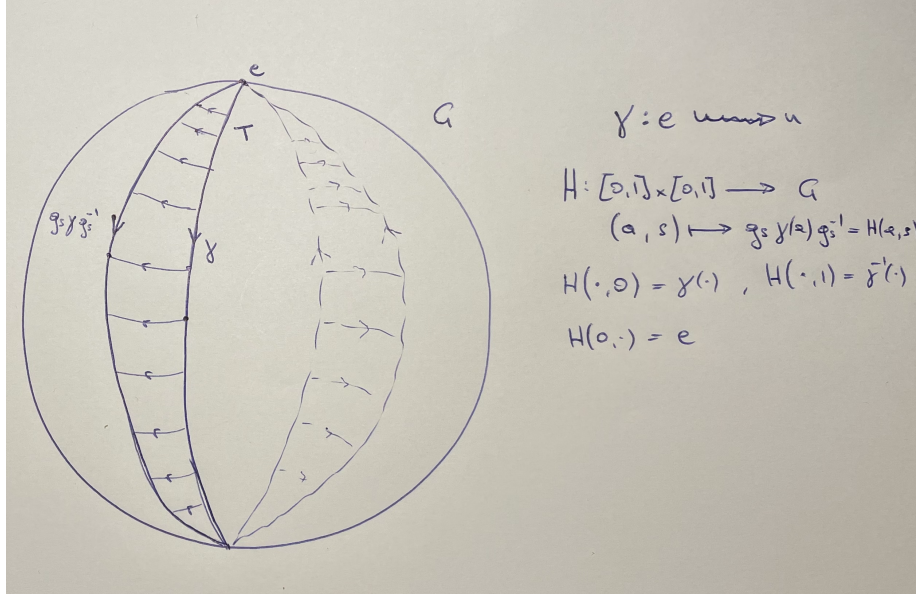 e
G
T
gₛ γ gₛ⁻¹
γ
γ : e ⟿ n
H : [0,1] × [0,1] ⟶ G
(a, s) ⟼ gₛ γ(a) gₛ⁻¹ = H(a, s)
H(·, 0) = γ(·) , H(·, 1) = γ⁻¹(·)
H(0, ·) = e